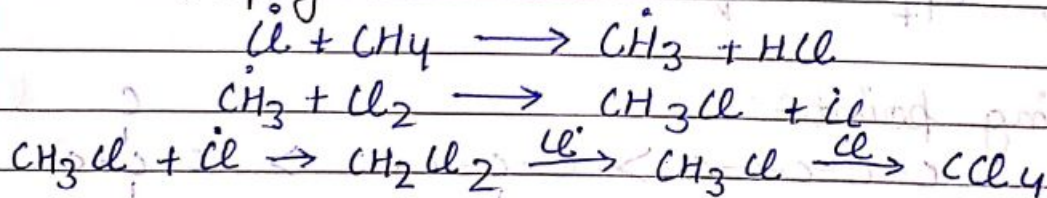 Ċl + CH4 ⟶ ĊH3 + HCl
ĊH3 + Cl2 ⟶ CH3Cl + Ċl
CH3Cl + Ċl → CH2Cl2 —Cl˙→ CH3Cl —Ċl→ CCl4